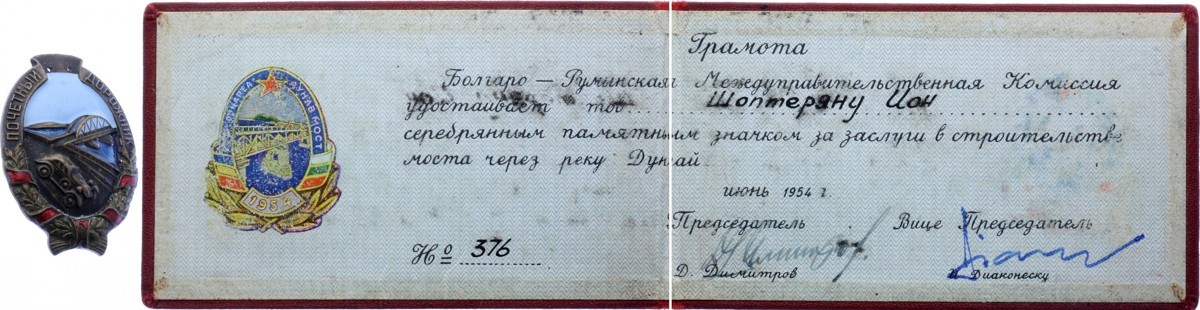 ПОЧЕТНЫЙ ДОРОЖНИК
ДУНАВ МОСТ
1954
Грамота
Болгаро — Румынская Междуправительственная Комиссия
удостаивает тов. Шоптеряну Ион
серебрянным памятным значком за заслуги в строительстве
моста через реку Дунай
июнь 1954 г.
Председатель Вице Председатель
Д. Димитров Диаконеску
Нº 376